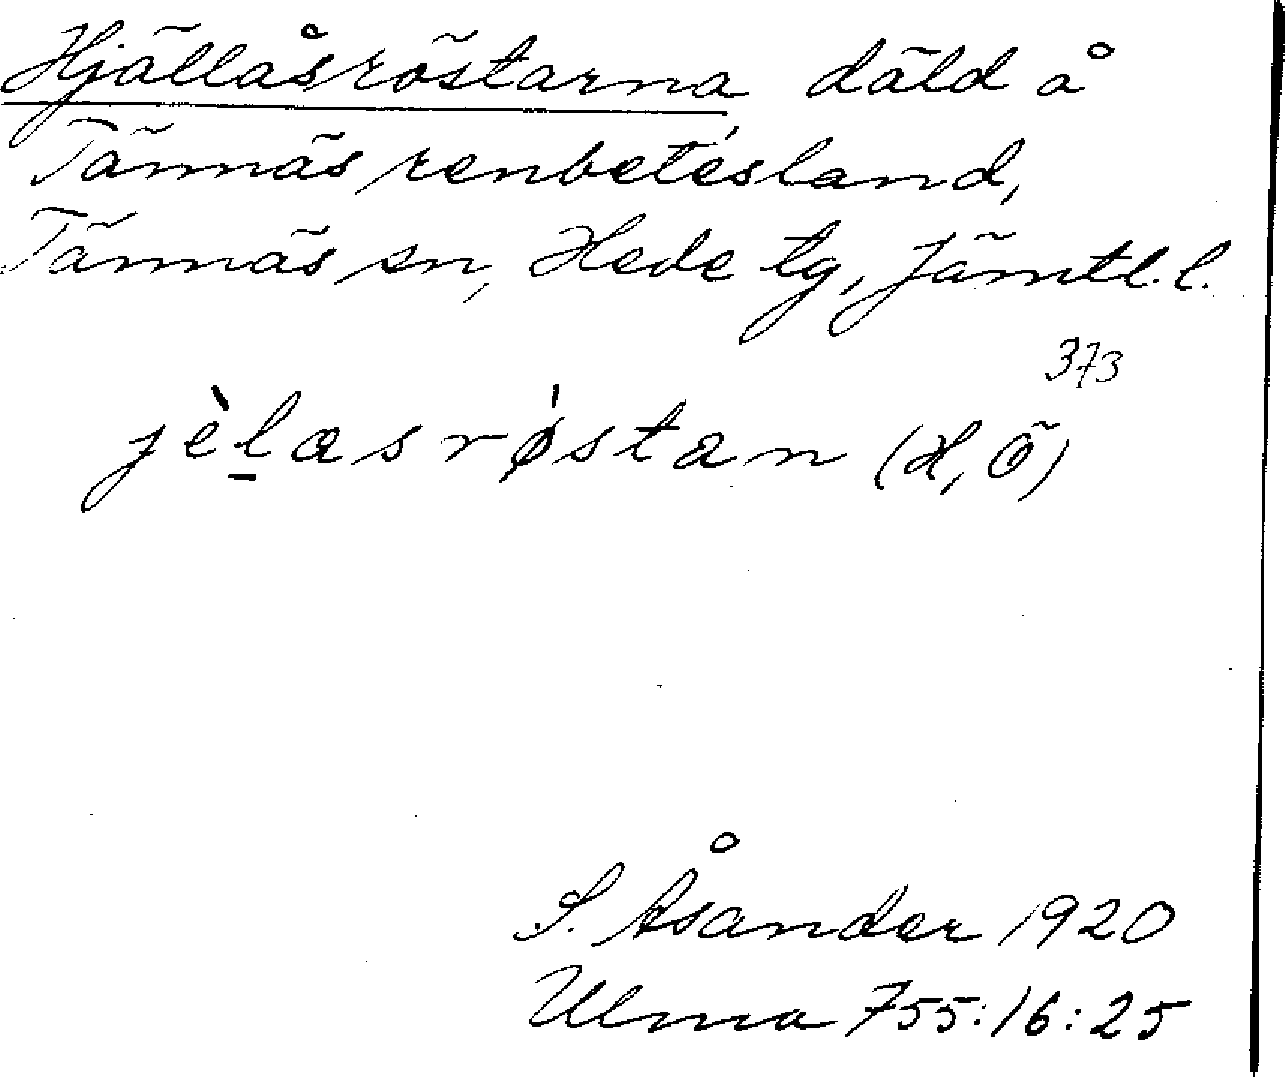 Hjällåsröstarna, däld å
Tännäs renbetesland,
Tännäs sn, Hede tg, Jämtl. l.
373
jèḻasrǿstan (H, Ö)
S. Åsander 1920
Ulma 755:16:25